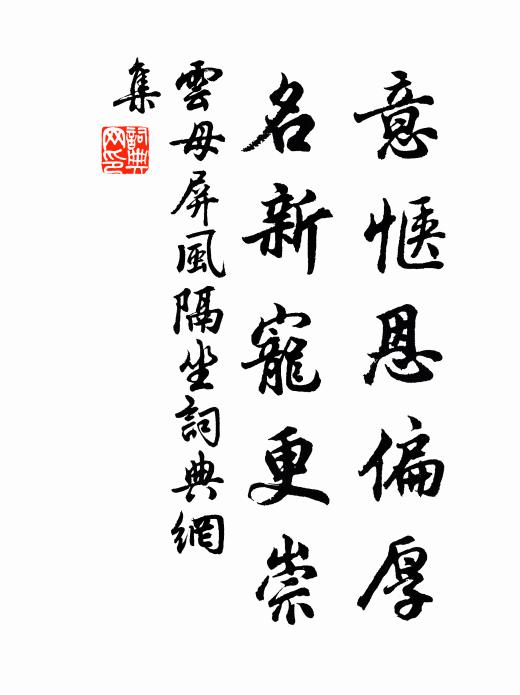 意惬恩偏厚
名新寵更崇
雲母屏風隔坐詞典網
集
詞典網印